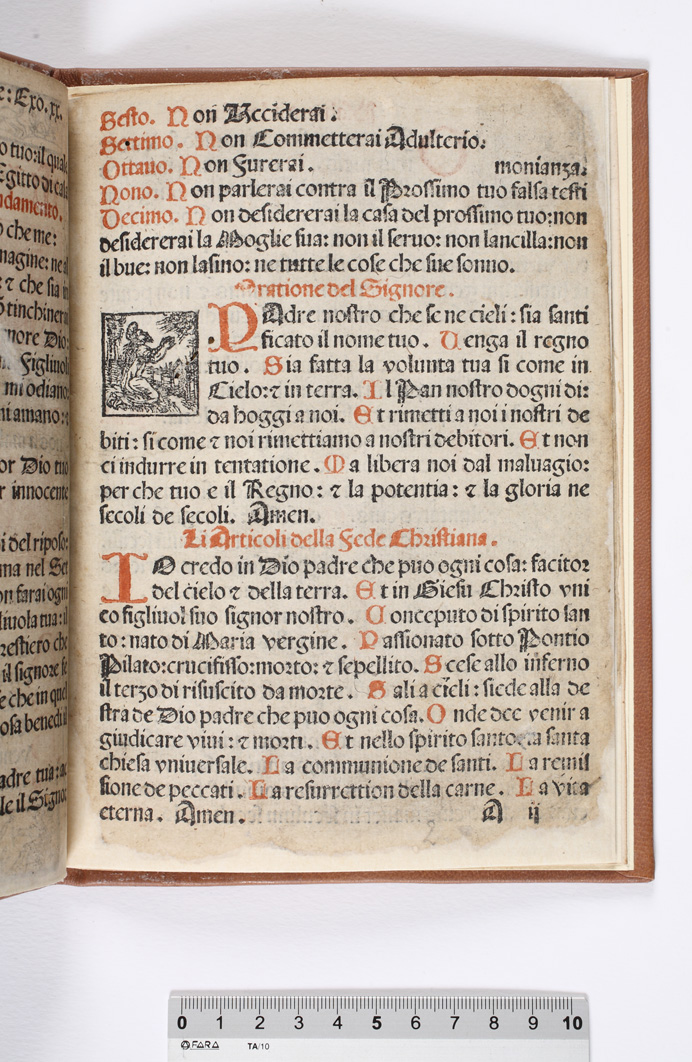 e: Exo. xx.
o tuo: il qual
Egitto di ca
ndamento.
o che me:
magine: ne a
: ⁊ che sia in
tinchinera
nore Dio:
Figliuol
mi odiano
ni amano: ⁊
or Dio tuo
r innocente
i del riposo:
ma nel Set
on farai ogni
liuola tua: il
restiero che
il signore fe
e che in quel
osa benedi il
adre tua: ac
le il Signo
Sesto. Non Ucciderai.
Settimo. Non Commetterai Adulterio.
Ottauo. Non Furerai. monianza.
Nono. Non parlerai contra il Prossimo tuo falsa testi
Decimo. Non desidererai la casa del prossimo tuo: non
desidererai la Moglie sua: non il seruo: non lancilla: non
il bue: non lasino: ne tutte le cose che sue sonno.
Oratione del Signore.
PAdre nostro che se ne cieli: sia santi
ficato il nome tuo. Uenga il regno
tuo. Sia fatta la volunta tua si come in
Cielo: ⁊ in terra. Il Pan nostro dogni di:
da hoggi a noi. Et rimetti a noi i nostri de
biti: si come ⁊ noi rimettiamo a nostri debitori. Et non
ci indurre in tentatione. Ma libera noi dal maluagio:
per che tuo e il Regno: ⁊ la potentia: ⁊ la gloria ne
secoli de secoli. Amen.
Li Articoli della Fede Christiana.
IO credo in Dio padre che puo ogni cosa: facitor
del cielo ⁊ della terra. Et in Giesu Christo vni
co figliuol suo signor nostro. Conceputo di spirito san
to: nato di Maria vergine. Passionato sotto Pontio
Pilato: crucifisso: morto: ⁊ sepellito. Scese allo inferno
il terzo di risuscito da morte. Sali a cieli: siede alla de
stra de Dio padre che puo ogni cosa. Onde dee venir a
giudicare viui: ⁊ morti. Et nello spirito santo. la santa
chiesa vniuersale. La communione de santi. La remis
sione de peccati. La resurrettion della carne. La vita
eterna. Amen. A ij
0 1 2 3 4 5 6 7 8 9 10
FARA TA/10